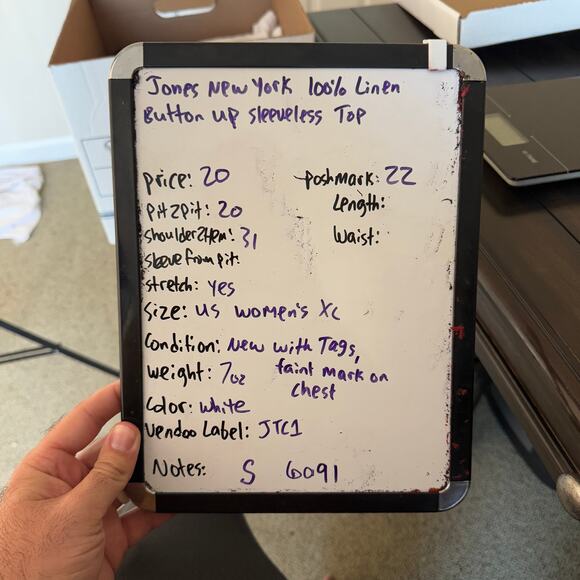 Jones New York 100% Linen
Button Up Sleeveless Top
price: 20
poshmark: 22
pit2pit: 20
Length:
shoulder2hem: 31
waist:
sleeve from pit:
stretch: yes
Size: US women's XL
Condition: New with Tags,
faint mark on
chest
weight: 7oz
Color: white
Vendoo Label: JTC1
Notes: S 6091